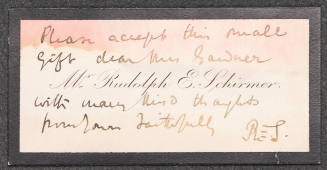 Please accept this small
Gift dear Mrs Gardner
Mr Rudolph E. Schirmer.
with many kind thoughts
from yours faithfully
R.E.S.